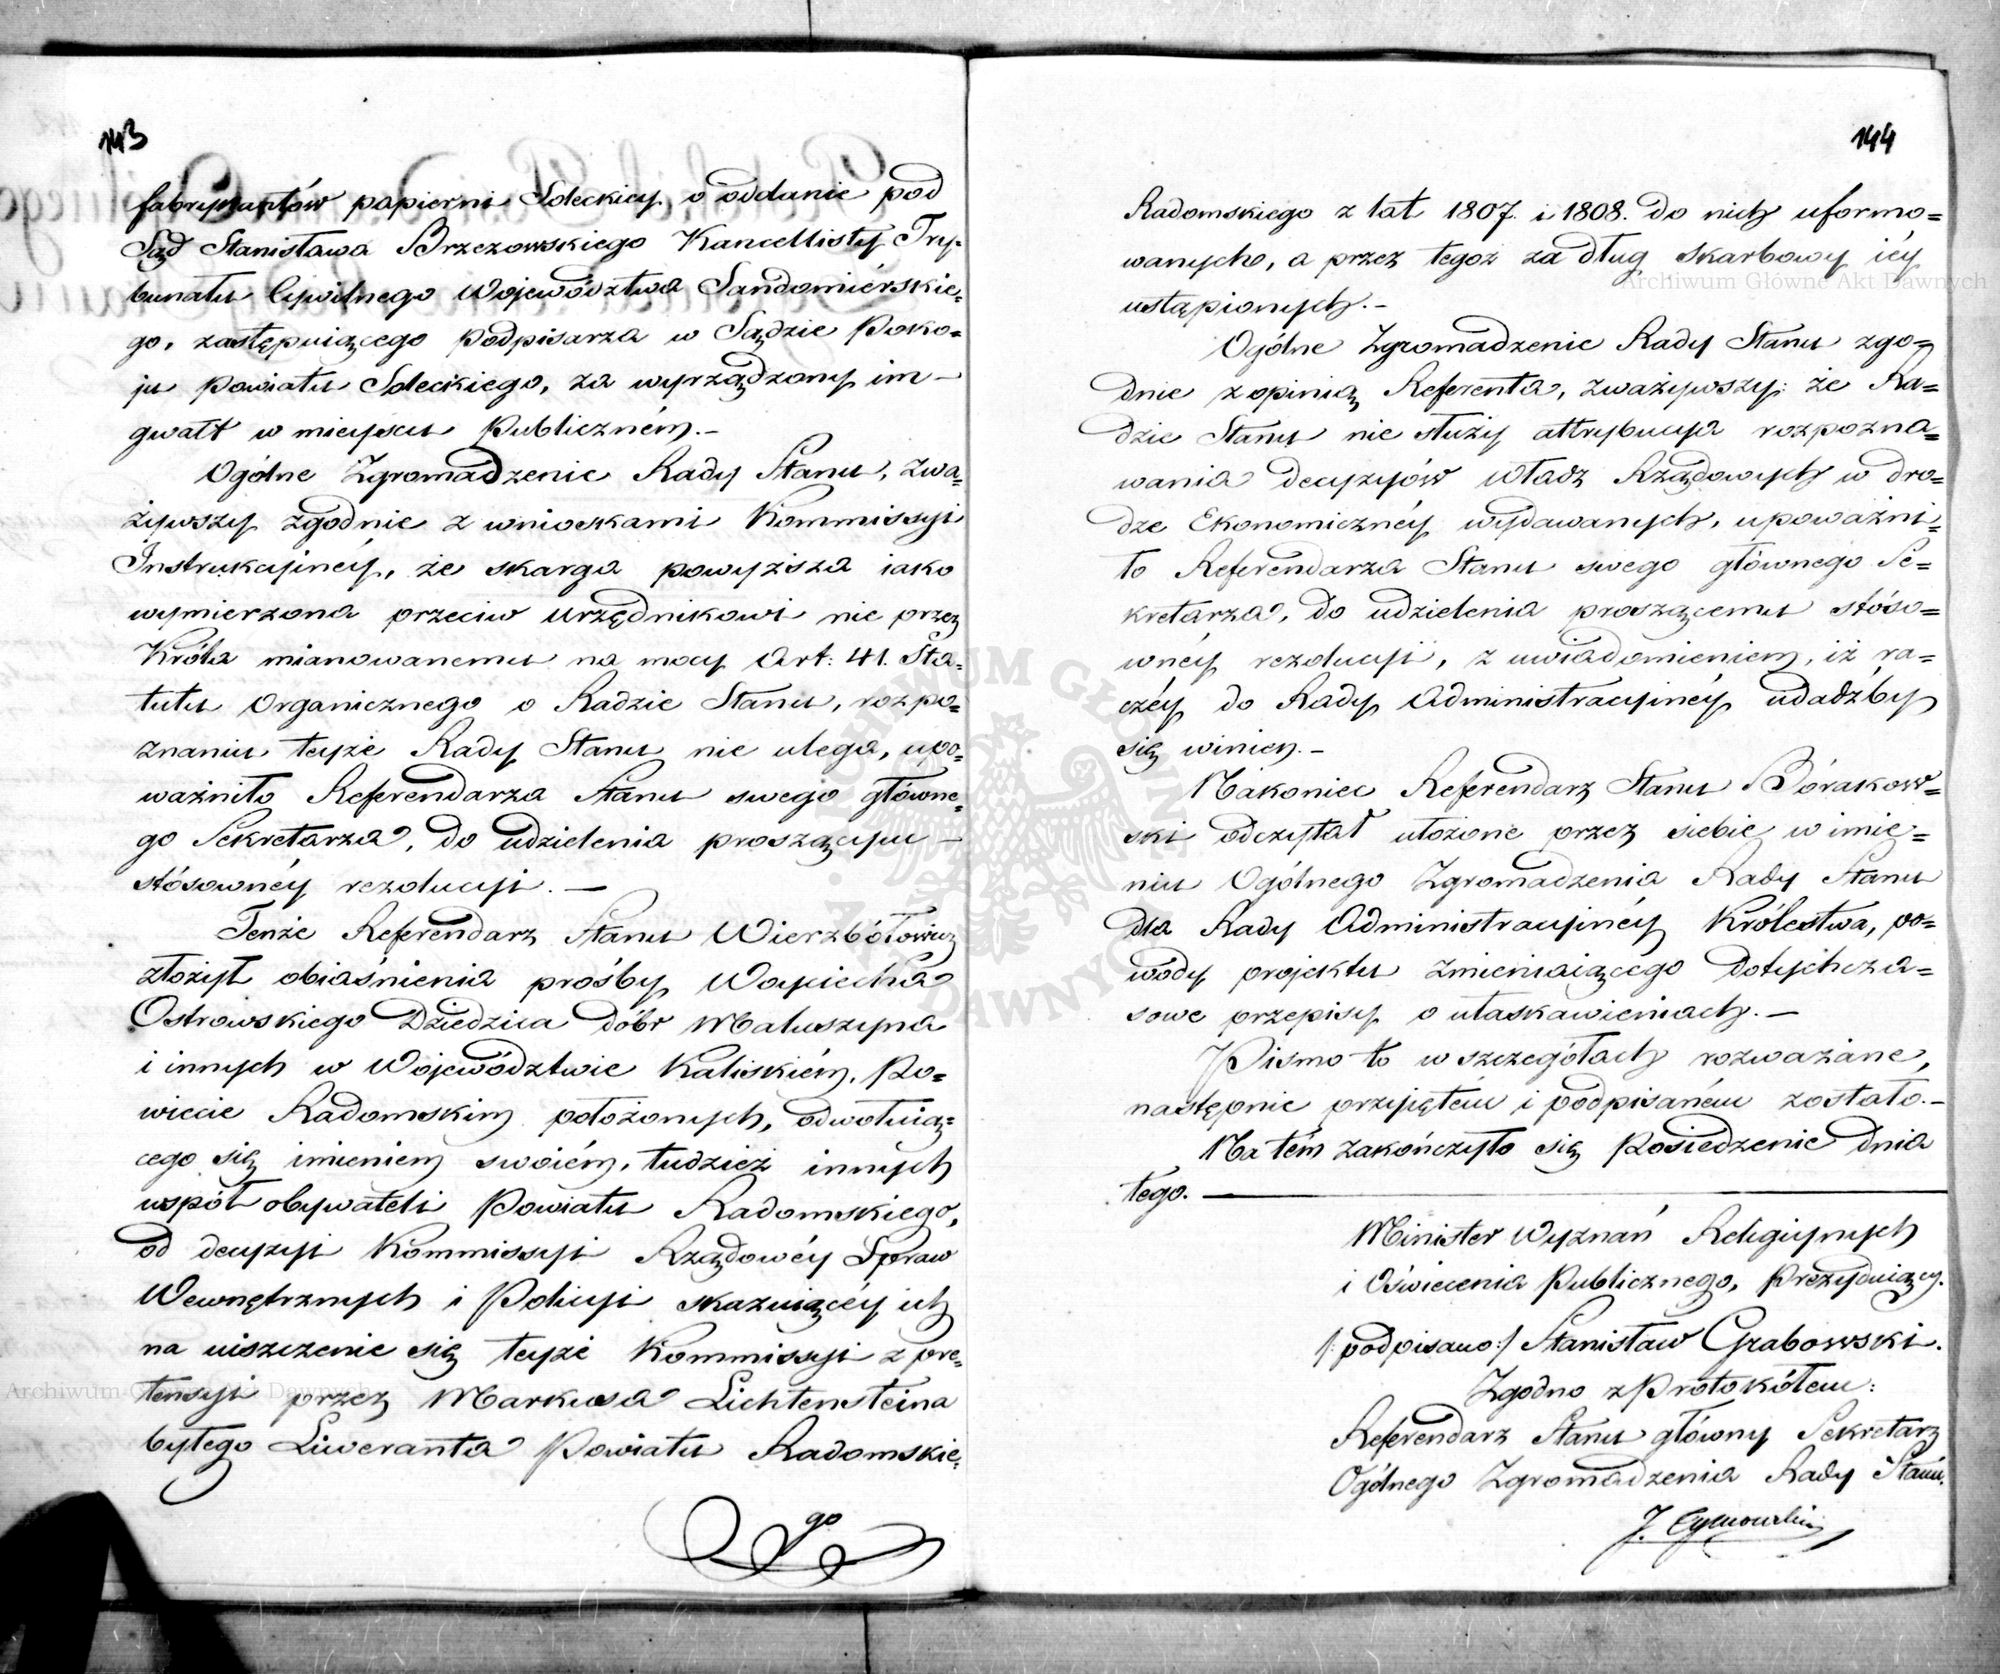 143
fabrykantów papierni Soleckiey o oddanie pod
Sąd Stanisława Brzezowskiego Kancellisty Try-
bunału Cywilnego Województwa Sandomiérskie=
go, zastępuiącego Podpisarza w Sądzie Poko=
ju Powiatu Soleckiego, za wyrządzony im —
gwałt w mieyscu Publiczném.—
Ogólne Zgromadzenie Rady Stanu, zwa=
żywszy zgodnie z wnioskami Kommissyi
Instrukcyinéy, że skarga powyższa iako
wymierzona przeciw Urzędnikowi nie przez
Króla mianowanemu na mocy Art: 41. Sta=
tutu Organicznego o Radzie Stanu, rozpo=
znaniu teyże Rady Stanu nie ulega, upo=
ważniło Referendarza Stanu swego główne=
go Sekretarza, do udzielenia proszącym —
stósownéy rezolucyi. —
Tenże Referendarz Stanu Wierzbółowicz
złożył obiaśnienia prośby Woyciecha
Ostrowskiego Dziedzica dóbr Maluszyna
i innych w Województwie Kaliskiém, Po=
wiecie Radomskim położonych, odwołuią=
cego się imieniem swoiém, tudzież innych
współ obywateli Powiatu Radomskiego,
od decyzyi Kommissyi Rządowéy Spraw
Wewnętrznych i Policyi skazuiącéy ich
na uiszczenie się teyże Kommissyi z pre=
tensyi przez Markusa Lichtensteina
byłego Liweranta Powiatu Radomskie=
go
144
Radomskiego z lat 1807. i 1808. do nich uformo=
wanych, a przez tegoż za dług skarbowy iéy
ustąpionych.—
Ogólne Zgromadzenie Rady Stanu zgo=
dnie z opinią Referenta, zważywszy: że Ra=
dzie Stanu nie służy attrybucya rozpozna=
wania decyzyów Władz Rządowych w dro=
dze Ekonomicznéy wydawanych, upoważni=
ło Referendarza Stanu swego głównego Se=
kretarza, do udzielenia proszącemu stóso=
wnéy rezolucyi, z uwiadomieniem, iż ra=
czéy do Rady Administracyinéy udadźby
się winien.—
Nakoniec Referendarz Stanu Bórakow=
ski odczytał ułożone przez siebie w imie=
niu Ogólnego Zgromadzenia Rady Stanu
dla Rady Administracyinéy Królestwa, po=
wody projektu zmieniaiącego dotychcza=
sowe przepisy o ułaskawieniach.—
Pismo to w szczegółach rozważane,
następnie przyiętém i podpisaném zostało.—
Na tém zakończyło się Posiedzenie dnia
tego.
Minister Wyznań Religiynych
i Oświecenia Publicznego, Prezyduiący.
/:podpisano:/ Stanisław Grabowski.
Zgodno z Protokółem:
Referendarz Stanu główny Sekretarz
Ogólnego Zgromadzenia Rady Stanu.
J.
Archiwum Główne Akt Dawnych
Archiwum Główne Akt Dawnych
ARCHIWUM GŁÓWNE AKT DAWNYCH